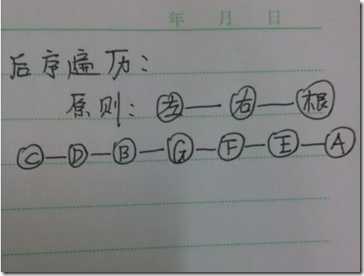 年 月 日
后序遍历:
原则: 左—右—根
C—D—B—G—F—E—A